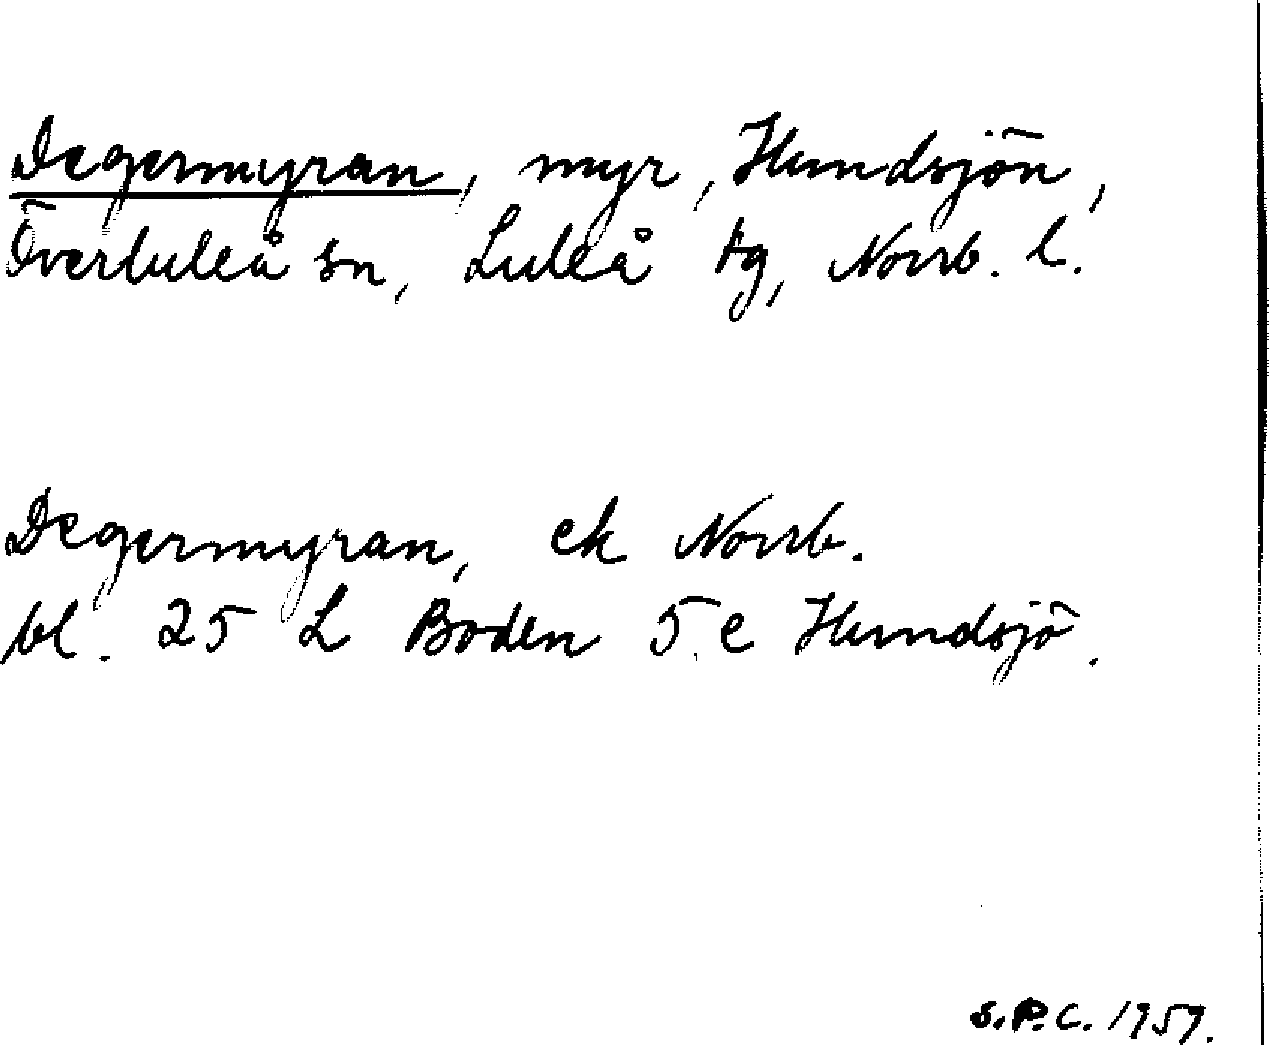 Degermyran, myr, Hundsjön,
Överluleå sn, Luleå tg, Norrb. l.
Degermyran, ek Norrb.
bl. 25 L Boden 5 e Hundsjö.
S.P.C. 1959.